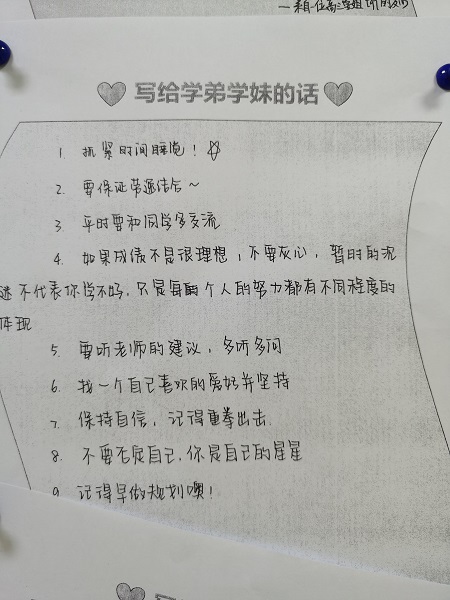 写给学弟学妹的话
1. 抓紧时间睡觉!
2. 要保证劳逸结合~
3. 平时要和同学多交流
4. 如果成绩不是很理想,不要灰心,暂时的沉
迷不代表你学不吗,只是每个人的努力都有不同程度的
体现
5. 要听老师的建议,多听多问
6. 找一个自己喜欢的爱好并坚持
7. 保持自信,记得重拳出击.
8. 不要否定自己,你是自己的星星
9 记得早做规划噢!